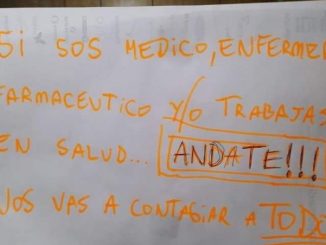 SI SOS MEDICO, ENFERME
FARMACEUTICO Y/O TRABAJAS
EN SALUD... ANDATE!!!
NOS VAS A CONTAGIAR A TODO